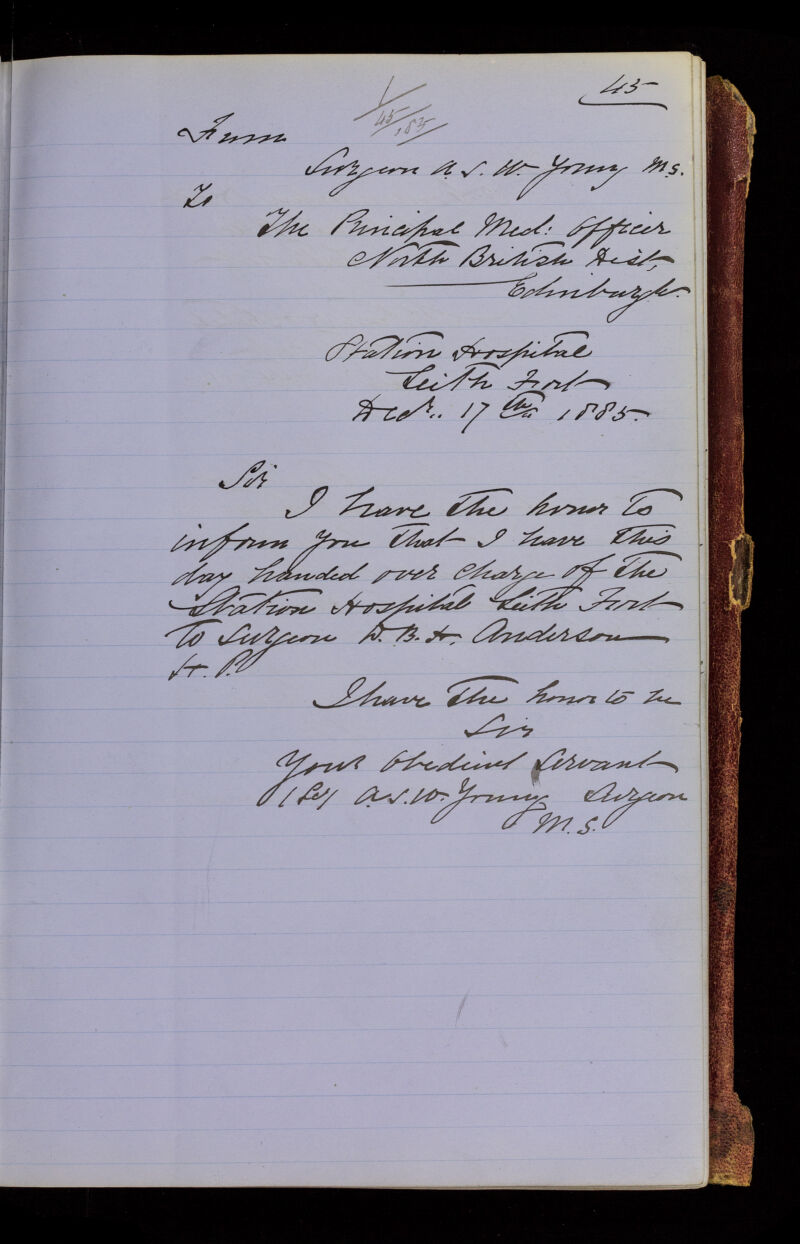 45
1/45/85
From
Surgeon A. S. W. Young M.S.
To
The Principal Med: Officer
North British Dist,
Edinburgh.
Station Hospital
Leith Fort
Decr.. 17th 1885.
Sir
I have the honor to
inform you that I have this
day handed over charge of the
Station Hospital Leith Fort
to Surgeon D. B. H. Anderson
H. P.
I have the honor to be
Sir
Your Obedient Servant
A. S. W. Young Surgeon
M. S.